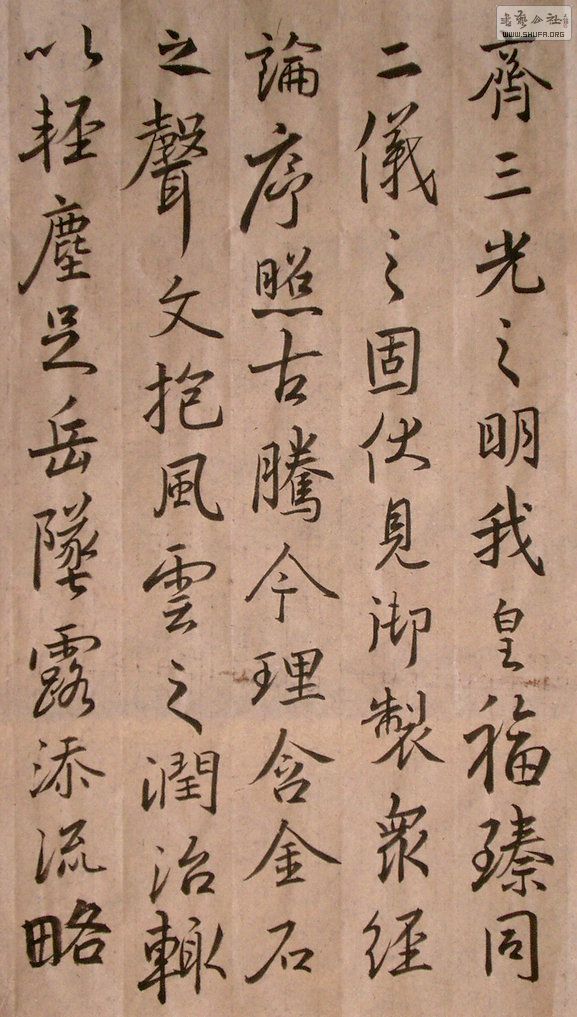 書藝公社
WWW.SHUFA.ORG
齊三光之明我皇福臻同
二儀之固伏見御製衆經
論序照古騰今理含金石
之聲文抱風雲之潤治輒
以輕塵足岳墜露添流略